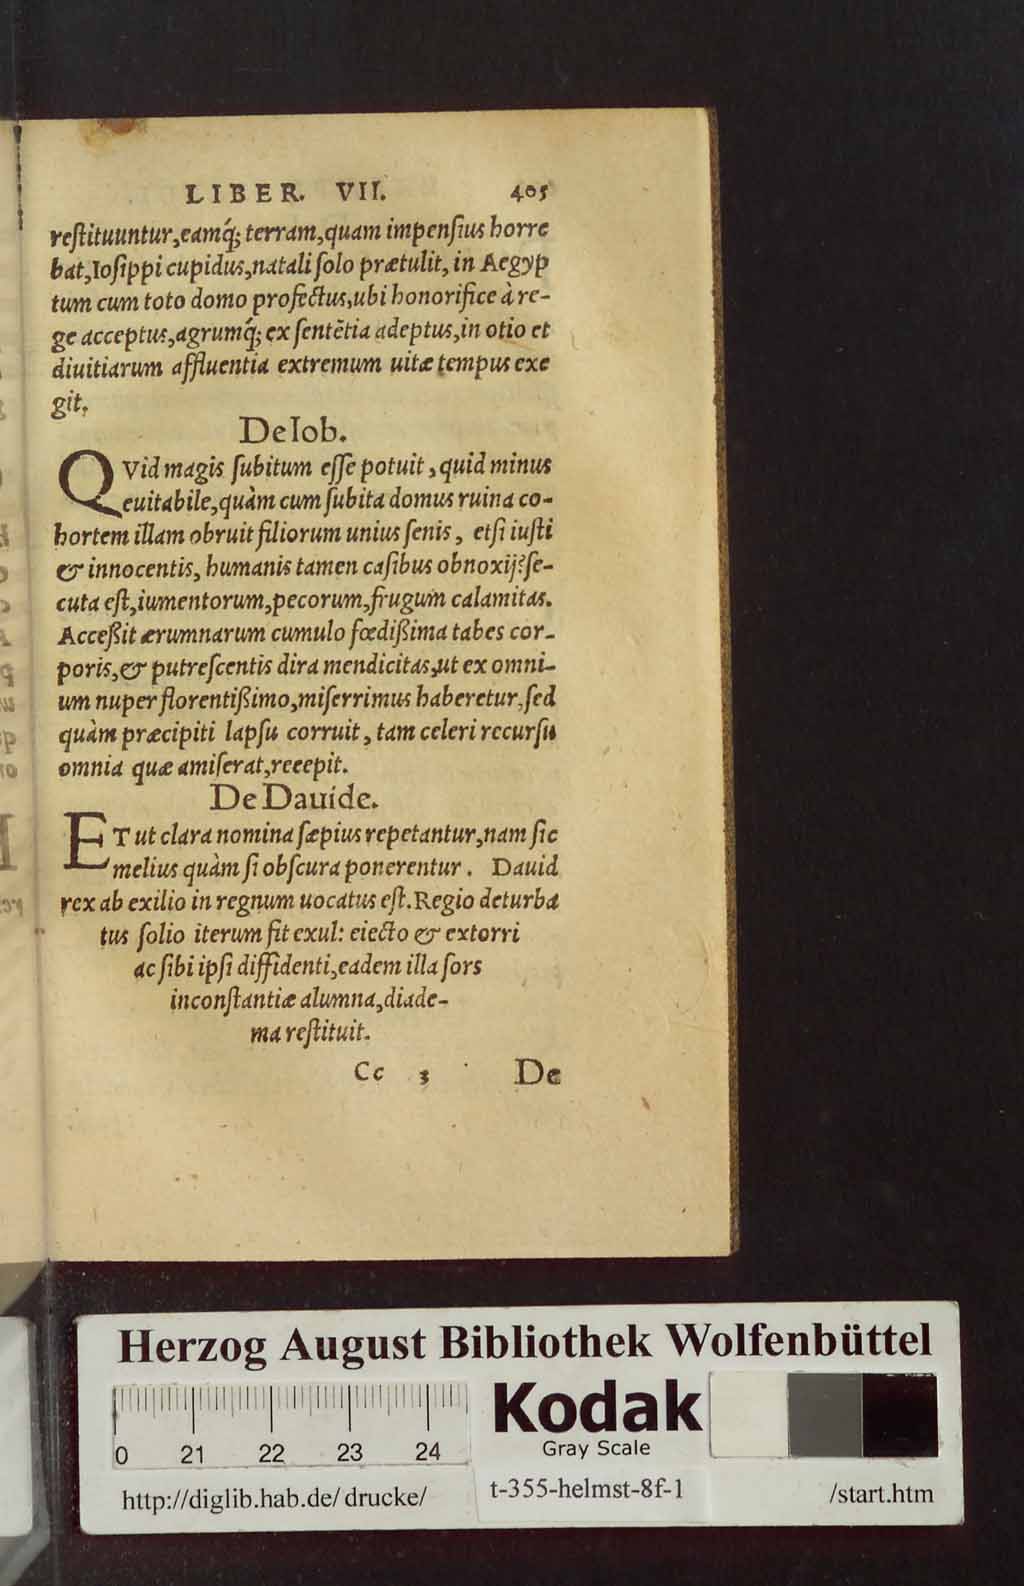 LIBER. VII. 405
restituuntur,eamq́; terram,quam impensius horre
bat,Iosippi cupidus,natali solo prætulit, in Aegyp
tum cum toto domo profectus,ubi honorifice à re-
ge acceptus,agrumq́; ex sentētia adeptus,in otio et
diuitiarum affluentia extremum uitæ tempus exe
git.
De Iob.
QVid magis subitum esse potuit , quid minus
euitabile,quàm cum subita domus ruina co-
hortem illam obruit filiorum unius senis , etsi iusti
& innocentis, humanis tamen casibus obnoxij? se-
cuta est,iumentorum,pecorum,frugum calamitas.
Acceßit ærumnarum cumulo fœdißima tabes cor-
poris,& putrescentis dira mendicitas,ut ex omni-
um nuper florentißimo,miserrimus haberetur,sed
quàm præcipiti lapsu corruit , tam celeri recursu
omnia quæ amiserat,recepit.
De Dauide.
ET ut clara nomina sæpius repetantur,nam sic
melius quàm si obscura ponerentur . Dauid
rex ab exilio in regnum uocatus est.Regio deturba
tus solio iterum fit exul: eiecto & extorri
ac sibi ipsi diffidenti,eadem illa sors
inconstantiæ alumna,diade-
ma restituit.
Cc 3 De
Herzog August Bibliothek Wolfenbüttel
0 21 22 23 24
Kodak
Gray Scale
http://diglib.hab.de/drucke/ t-355-helmst-8f-1 /start.htm